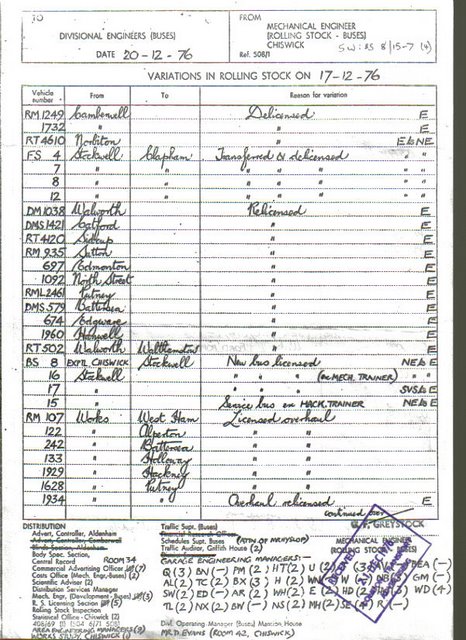 TO
FROM
DIVISIONAL ENGINEERS (BUSES)
MECHANICAL ENGINEER
(ROLLING STOCK - BUSES)
CHISWICK
DATE 20-12-76
Ref. 508/1
SW: RS 8/15-7 (4)
VARIATIONS IN ROLLING STOCK ON 17-12-76
Vehicle number From To Reason for variation
RM 1249 Camberwell Delicensed E
1732 " " E
RT 4610 Norbiton " E & NE
FS 4 Stockwell Clapham Transferred & delicensed " "
7 " " " " " " "
8 " " " " " " "
12 " " " " " " "
DM 1038 Walworth Relicensed E
DMS 1421 Catford " E
RT 4120 Sidcup " E
RM 935 Sutton " E
697 Edmonton " E
1092 North Street " E
RML 2461 Putney " E
DMS 579 Battersea " E
674 Edgware " E
1960 Hanwell " E
RT 502 Walworth Walthamstow " E
BS 8 EXP'L CHISWICK Stockwell New bus licensed NE & E
16 Stockwell " " " (ex MECH. TRAINER) " "
17 " " " " SVS & E
15 " Service bus ex MACK.TRAINER NE & E
RM 107 Works West Ham Licensed overhaul
122 " Alperton "
242 " Battersea "
133 " Holloway "
1929 " Hackney "
1628 " Putney "
1934 " Overhaul relicensed E
continued over
GREYSTOCK
DISTRIBUTION
Advert. Controller, Aldenham
Body Spec. Section,
Central Record ROOM 34
Commercial Advertising Officer (7)
Costs Office (Mech. Engr.-Buses) (2)
Scientific Adviser (2)
Distribution Services Manager
Mech. Engr. (Development - Buses) (3)
R. S. Licensing Section (5)
Licence Rebate Section
Statistical Office - Chiswick (2)
AREA ENGINEERING MANAGERS (3)
WORKS STUDY, CHISWICK (1)
Traffic Supt. (Buses)
Financial Research Officer
Schedules Supt. Buses (ATTN OF MR HYSLOP)
Traffic Auditor, Griffith House (2)
MECHANICAL ENGINEER
(ROLLING STOCK - BUSES)
CHISWICK
GARAGE ENGINEERING MANAGERS:-
Q (3) BN (-) TH (2) HT (2) U (2)
AL (2) TC (2) BX (3) H (2)
SW (2) ED (-) AR (2) WH (2) E (2) HD (2) WD (4)
TL (2) NX (2) BW (-) NS (2) MH (2) SE (4) R (-)
Divl. Operating Manager (Buses) Mansion House
MR D. EVANS (ROOM 42, CHISWICK)